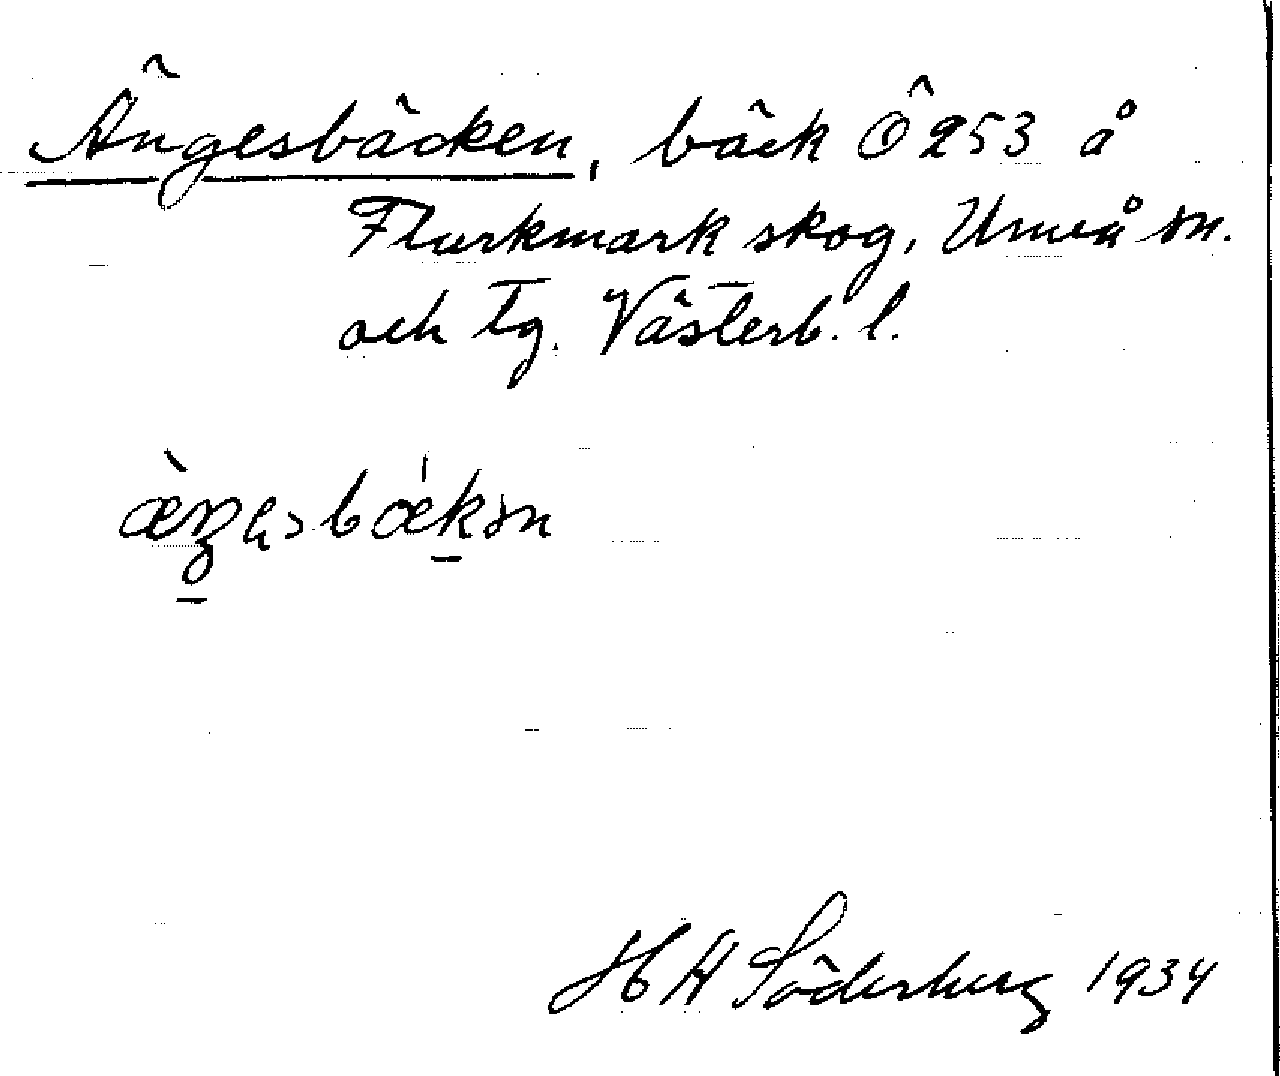 Ängesbäcken, bäck Ö 253 å
Flurkmark skog, Umeå sn.
och tg. Västerb. l.
H A Söderberg 1934